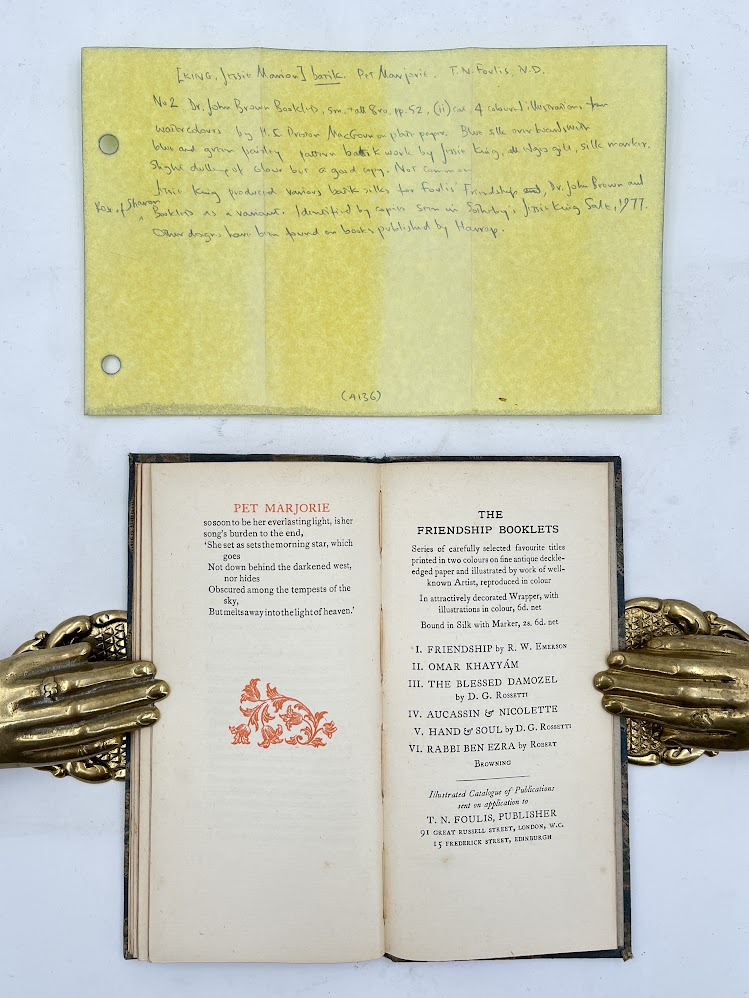 [KING, Jessie Marion] batik. Pet Marjorie. T.N. Foulis, N.D.
No 2 Dr. John Brown Booklets, sm. tall 8vo, pp. 52, (ii) cat. 4 coloured illustrations from
watercolours by H.C. Preston MacGoun on plate paper. Blue silk over boards with
blue and green paisley pattern batik work by Jessie King, all edges gilt, silk marker.
Slight dulling of colour but a good copy. Not common
Jessie King produced various batik silks for Foulis' Friendship, Dr. John Brown and
Rose of Sharon
Booklets as a variant. Identified by copies seen in Sotheby's Jessie King Sale, 1977.
Other designs have been found on books published by Harrap.
(A136)
PET MARJORIE
so soon to be her everlasting light, is her
song's burden to the end,
'She set as sets the morning star, which
goes
Not down behind the darkened west,
nor hides
Obscured among the tempests of the
sky,
But melts away into the light of heaven.'
THE
FRIENDSHIP BOOKLETS
Series of carefully selected favourite titles
printed in two colours on fine antique deckle-
edged paper and illustrated by work of well-
known Artist, reproduced in colour
In attractively decorated Wrapper, with
illustrations in colour, 6d. net
Bound in Silk with Marker, 2s. 6d. net
I. FRIENDSHIP by R. W. Emerson
II. OMAR KHAYYÁM
III. THE BLESSED DAMOZEL
by D. G. Rossetti
IV. AUCASSIN & NICOLETTE
V. HAND & SOUL by D. G. Rossetti
VI. RABBI BEN EZRA by Robert
Browning
Illustrated Catalogue of Publications
sent on application to
T. N. FOULIS, PUBLISHER
91 GREAT RUSSELL STREET, LONDON, W.C.
15 FREDERICK STREET, EDINBURGH